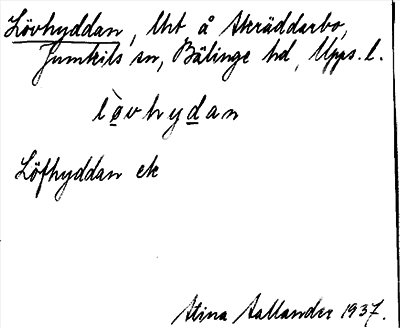 Lövhyddan, lht å Skräddarbo,
Jumkils sn, Bälinge hd, Upps. l.
lò̱vhyḏan
Löfhyddan ek
Stina Sallander 1937.